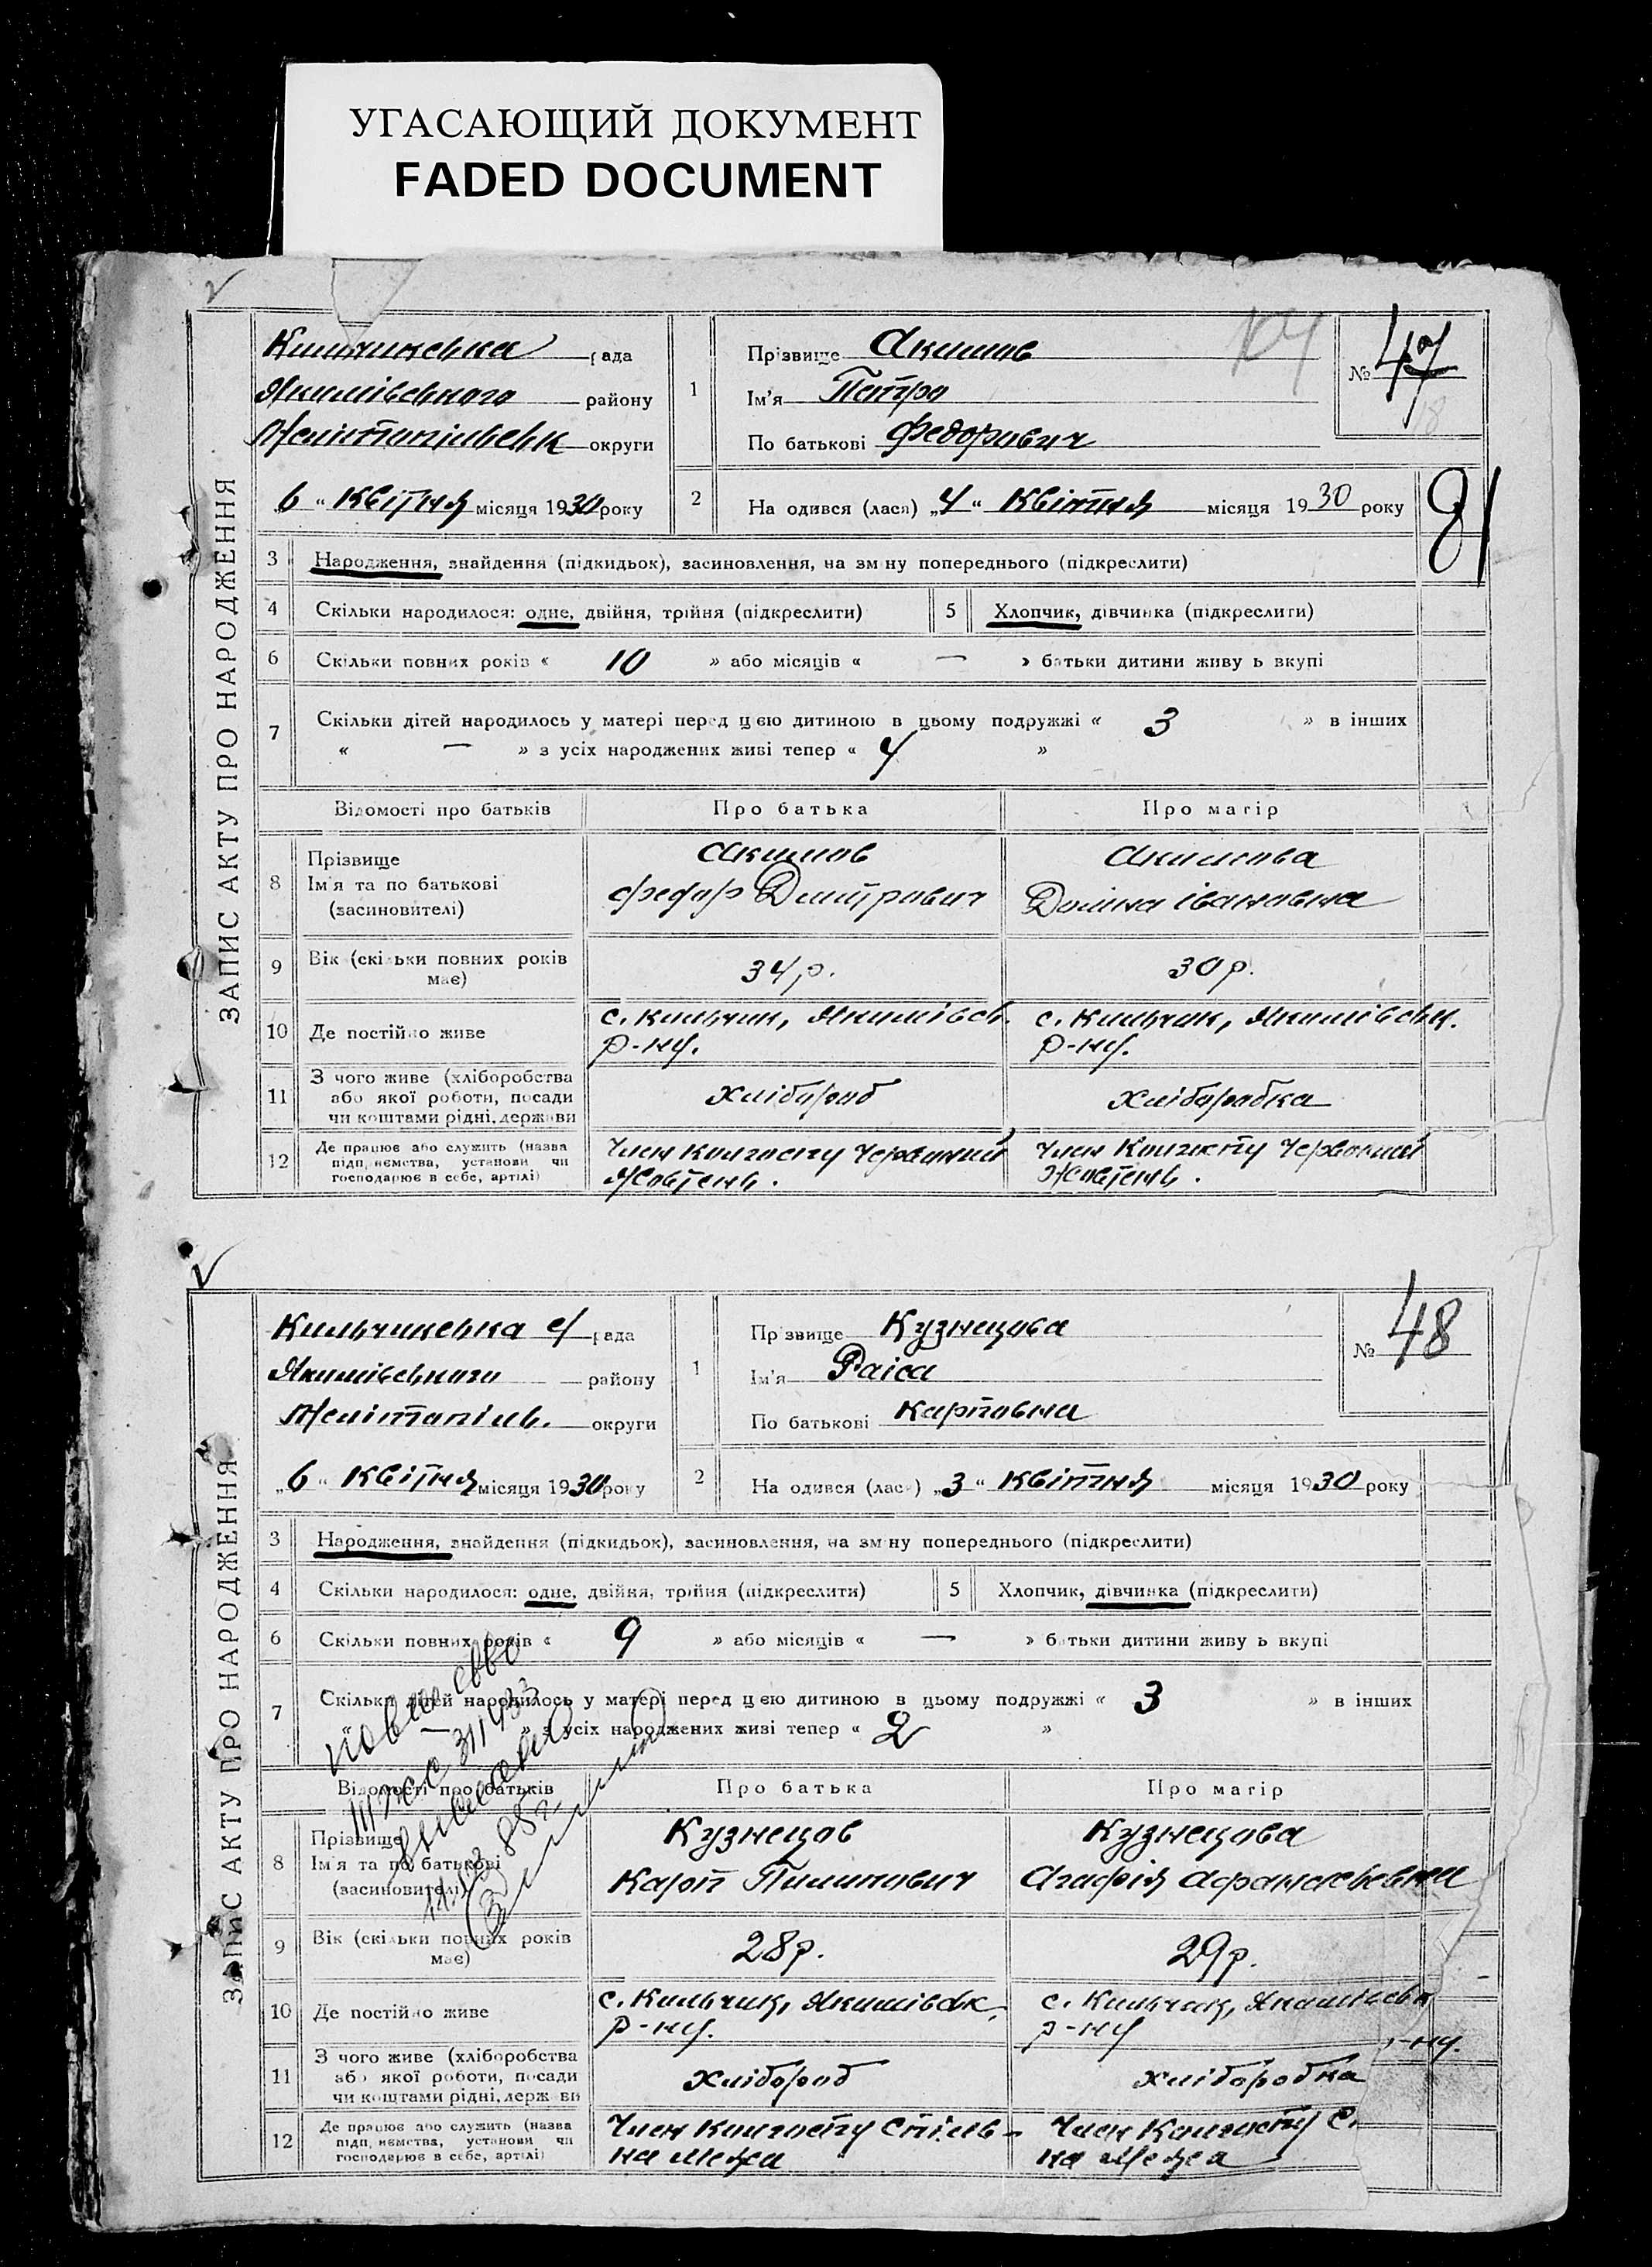 УГАСАЮЩИЙ ДОКУМЕНТ
FADED DOCUMENT
ЗАПИС АКТУ ПРО НАРОДЖЕННЯ
рада
Якимівського району
округи
6 " Квітня місяця 1930 року
1
Прізвище Акимов
Ім'я Петро
По батькові Федорович
№ 47
2
На одився (лася) „4 " Квітня місяця 1930 року
81
3 Народження, знайдення (підкидьок), засиновлення, на зміну попереднього (підкреслити)
4 Скільки народилося: одне, двійня, трійня (підкреслити)
5 Хлопчик, дівчинка (підкреслити)
6 Скільки повних років « 10 » або місяців « — » батьки дитини живу ь вкупі
7 Скільки дітей народилось у матері перед цією дитиною в цьому подружжі « 3 » в інших
« — » з усіх народжених живі тепер « 4 »
Відомості про батьків Про батька Про матір
8 Прізвище
Ім'я та по батькові
(засиновителі)
Акимов
Федор Дмитрович
Акимова
Івановна
9 Вік (скільки повних років
має)
34 р.
30 р.
10 Де постійно живе
с. Кильчик, Якимівськ.
р-ну.
с. Кильчик, Якимівськ.
р-ну.
11 З чого живе (хліборобства
або якої роботи, посади
чи коштами рідні, держави
хлібороб
хліборобка
12 Де працює або служить (назва
підприємства, установи чи
господарює в себе, артілі)
Член Колгоспу Червоний
Жовтень.
Член Колгоспу Червоний
Жовтень.
ЗАПИС АКТУ ПРО НАРОДЖЕННЯ
Кильчикська с/ рада
Якимівського району
Мелітопільс. округи
„6 " Квітня місяця 1930 року
1
Прізвище Кузнецова
Ім'я Раіса
По батькові Карповна
№ 48
2
На одився (лася) „3 " Квітня місяця 1930 року
3 Народження, знайдення (підкидьок), засиновлення, на зміну попереднього (підкреслити)
4 Скільки народилося: одне, двійня, трійня (підкреслити)
5 Хлопчик, дівчинка (підкреслити)
6 Скільки повних років « 9 » або місяців « — » батьки дитини живу ь вкупі
7 Скільки дітей народилось у матері перед цією дитиною в цьому подружжі « 3 » в інших
« — » з усіх народжених живі тепер « 2 »
Відомості про батьків Про батька Про матір
8 Прізвище
Ім'я та по батькові
(засиновителі)
Кузнецов
Карп Пилипович
Кузнецова
Агафія Афанасьевна
9 Вік (скільки повних років
має)
28 р.
29 р.
10 Де постійно живе
с. Кильчик, Якимівськ.
р-ну.
с. Кильчик,
р-ну
11 З чого живе (хліборобства
або якої роботи, посади
чи коштами рідні, держави
хлібороб
хліборобка
12 Де працює або служить (назва
підприємства, установи чи
господарює в себе, артілі)
Член Колгоспу Спіль-
на Межа
Член Колгоспу С.
на Межа